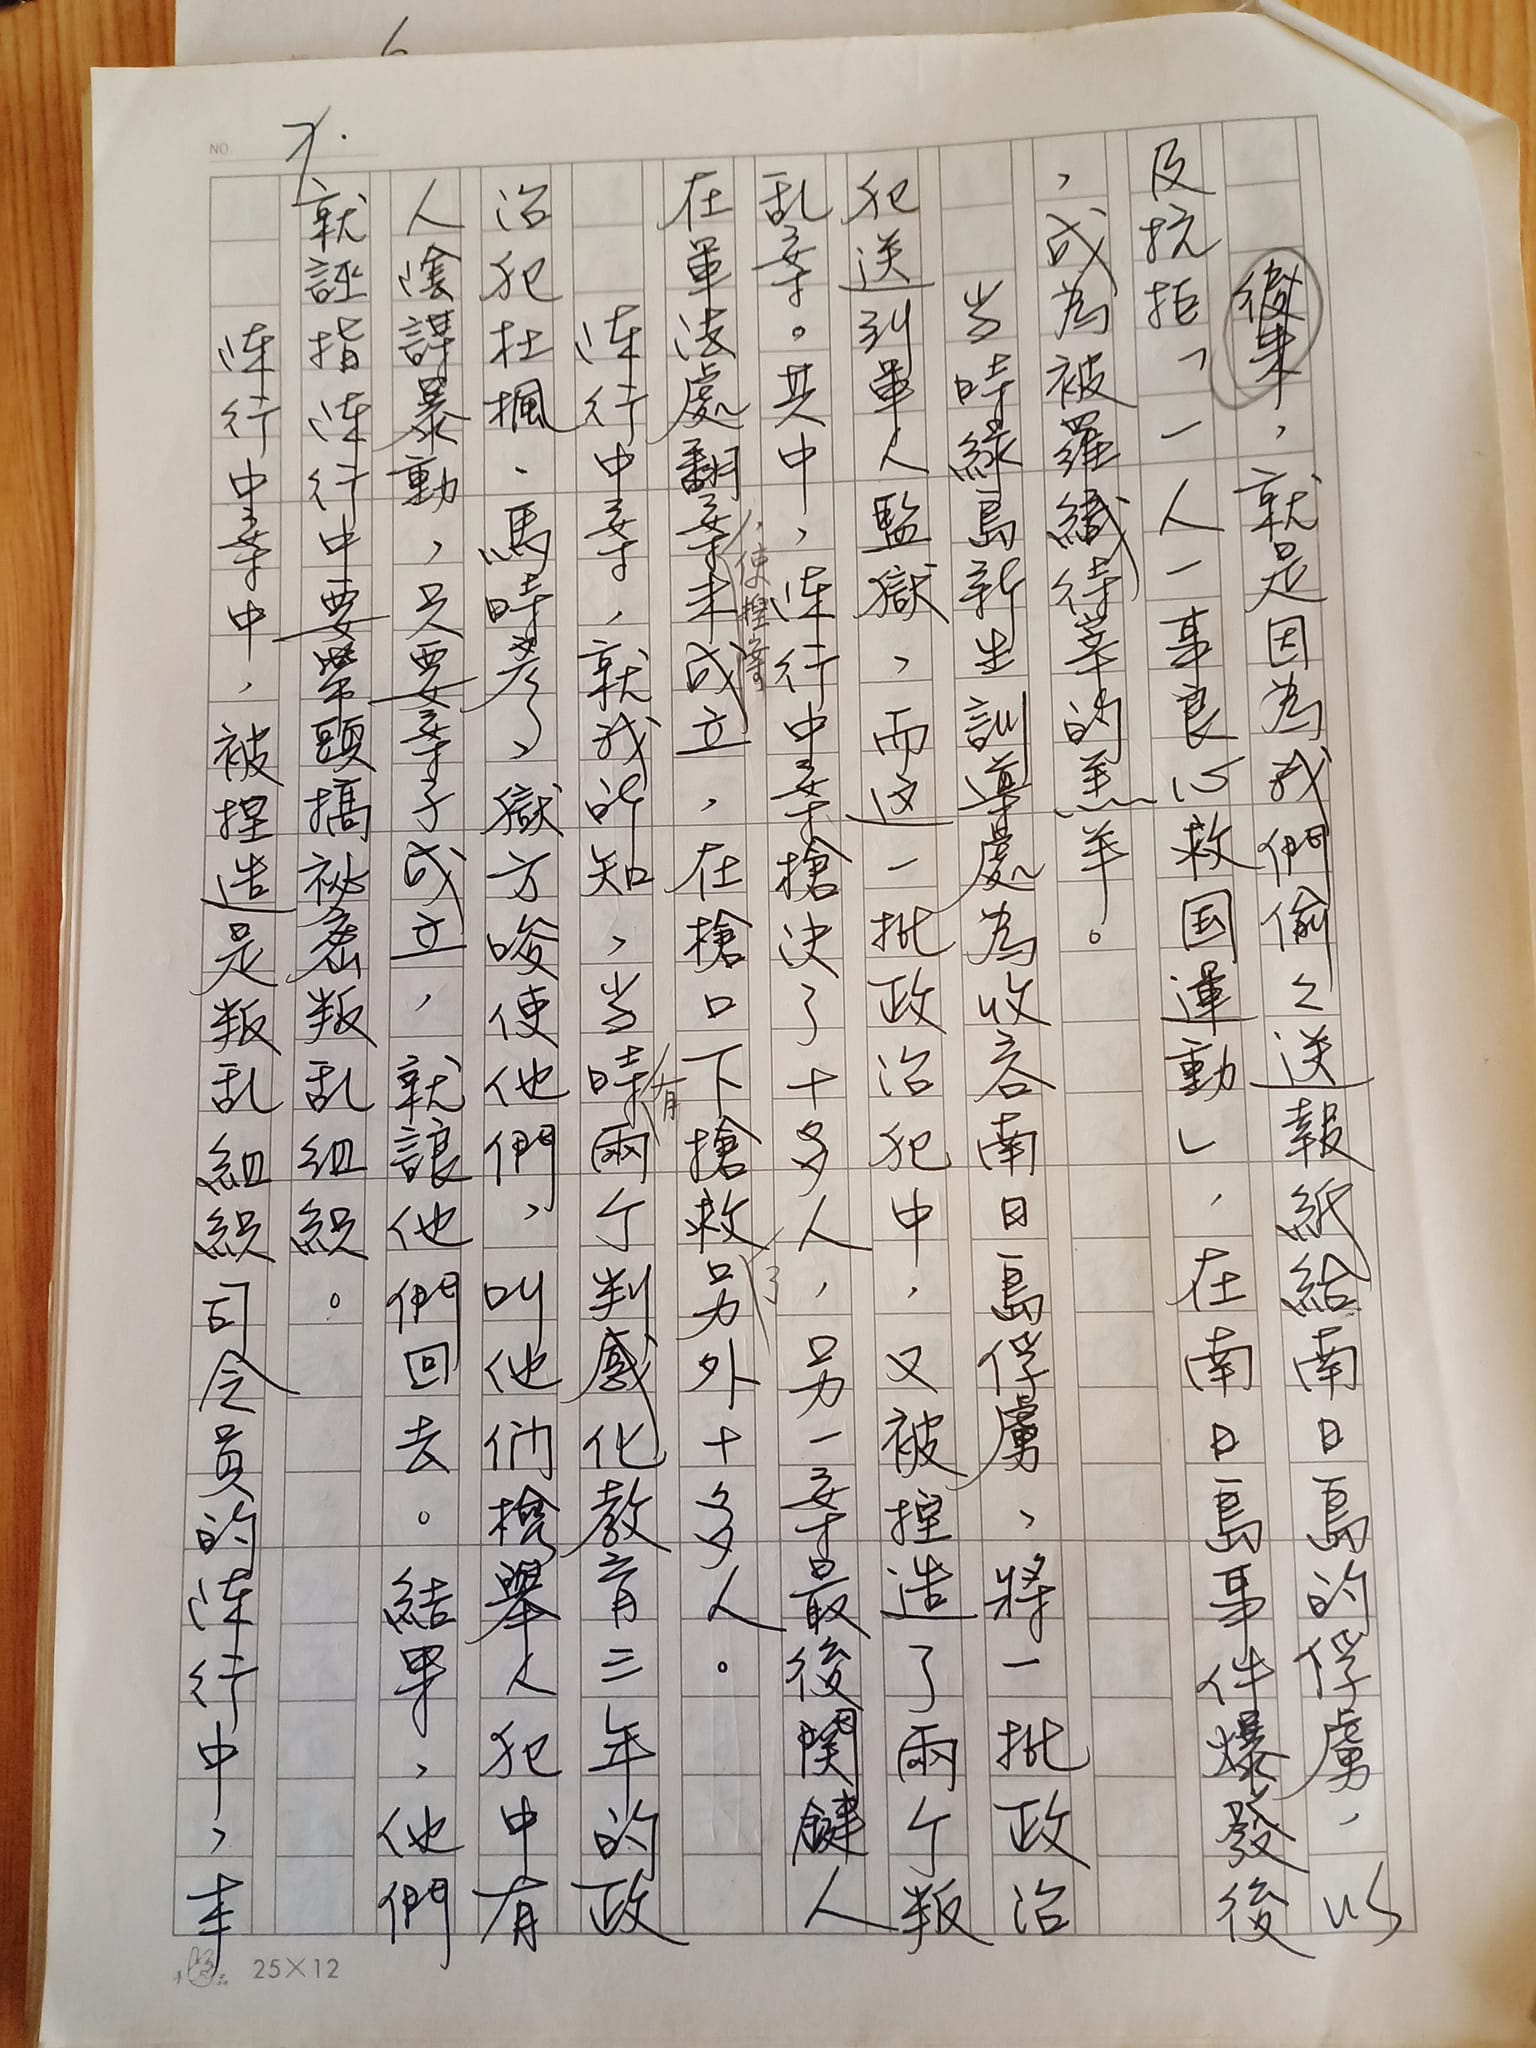 NO. 7.
後來，就是因為我們偷々送報紙給南日島的俘虜，以
及抗拒「一人一事良心救国運動」，在南日島事件爆發後
，成為被羅織待宰的羔羊。
当時綠島新生訓導處為收容南日島俘虜，將一批政治
犯送到軍人監獄，而这一批政治犯中，又被捏造了兩个叛
乱案。其中，陈行中案槍決了十多人，另一案最後関鍵人
在軍法處翻案，使捏造未成立，在槍口下搶救了另外十多人。
陈行中案，就我所知，当時有兩个判感化教育三年的政
治犯杜楓、馬時彥，獄方唆使他們，叫他们檢舉人犯中有
人陰謀暴動，只要案子成立，就讓他們回去。結果，他們
就誣指陈行中要帶頭搞祕密叛乱组织。
陈行中案中，被捏造是叛乱组织司令員的陈行中，本
25×12